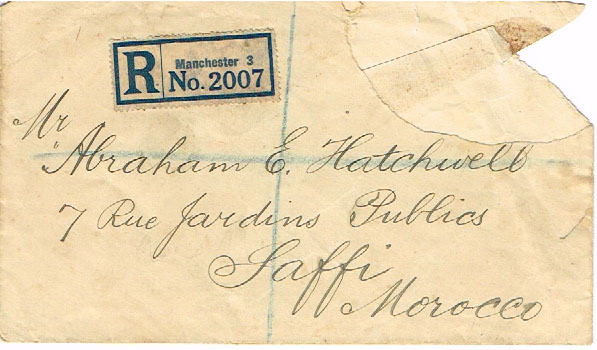 R
Manchester 3
No. 2007
Mr
Abraham E. Hatchwell
7 Rue Jardins Publics
Saffi
Morocco